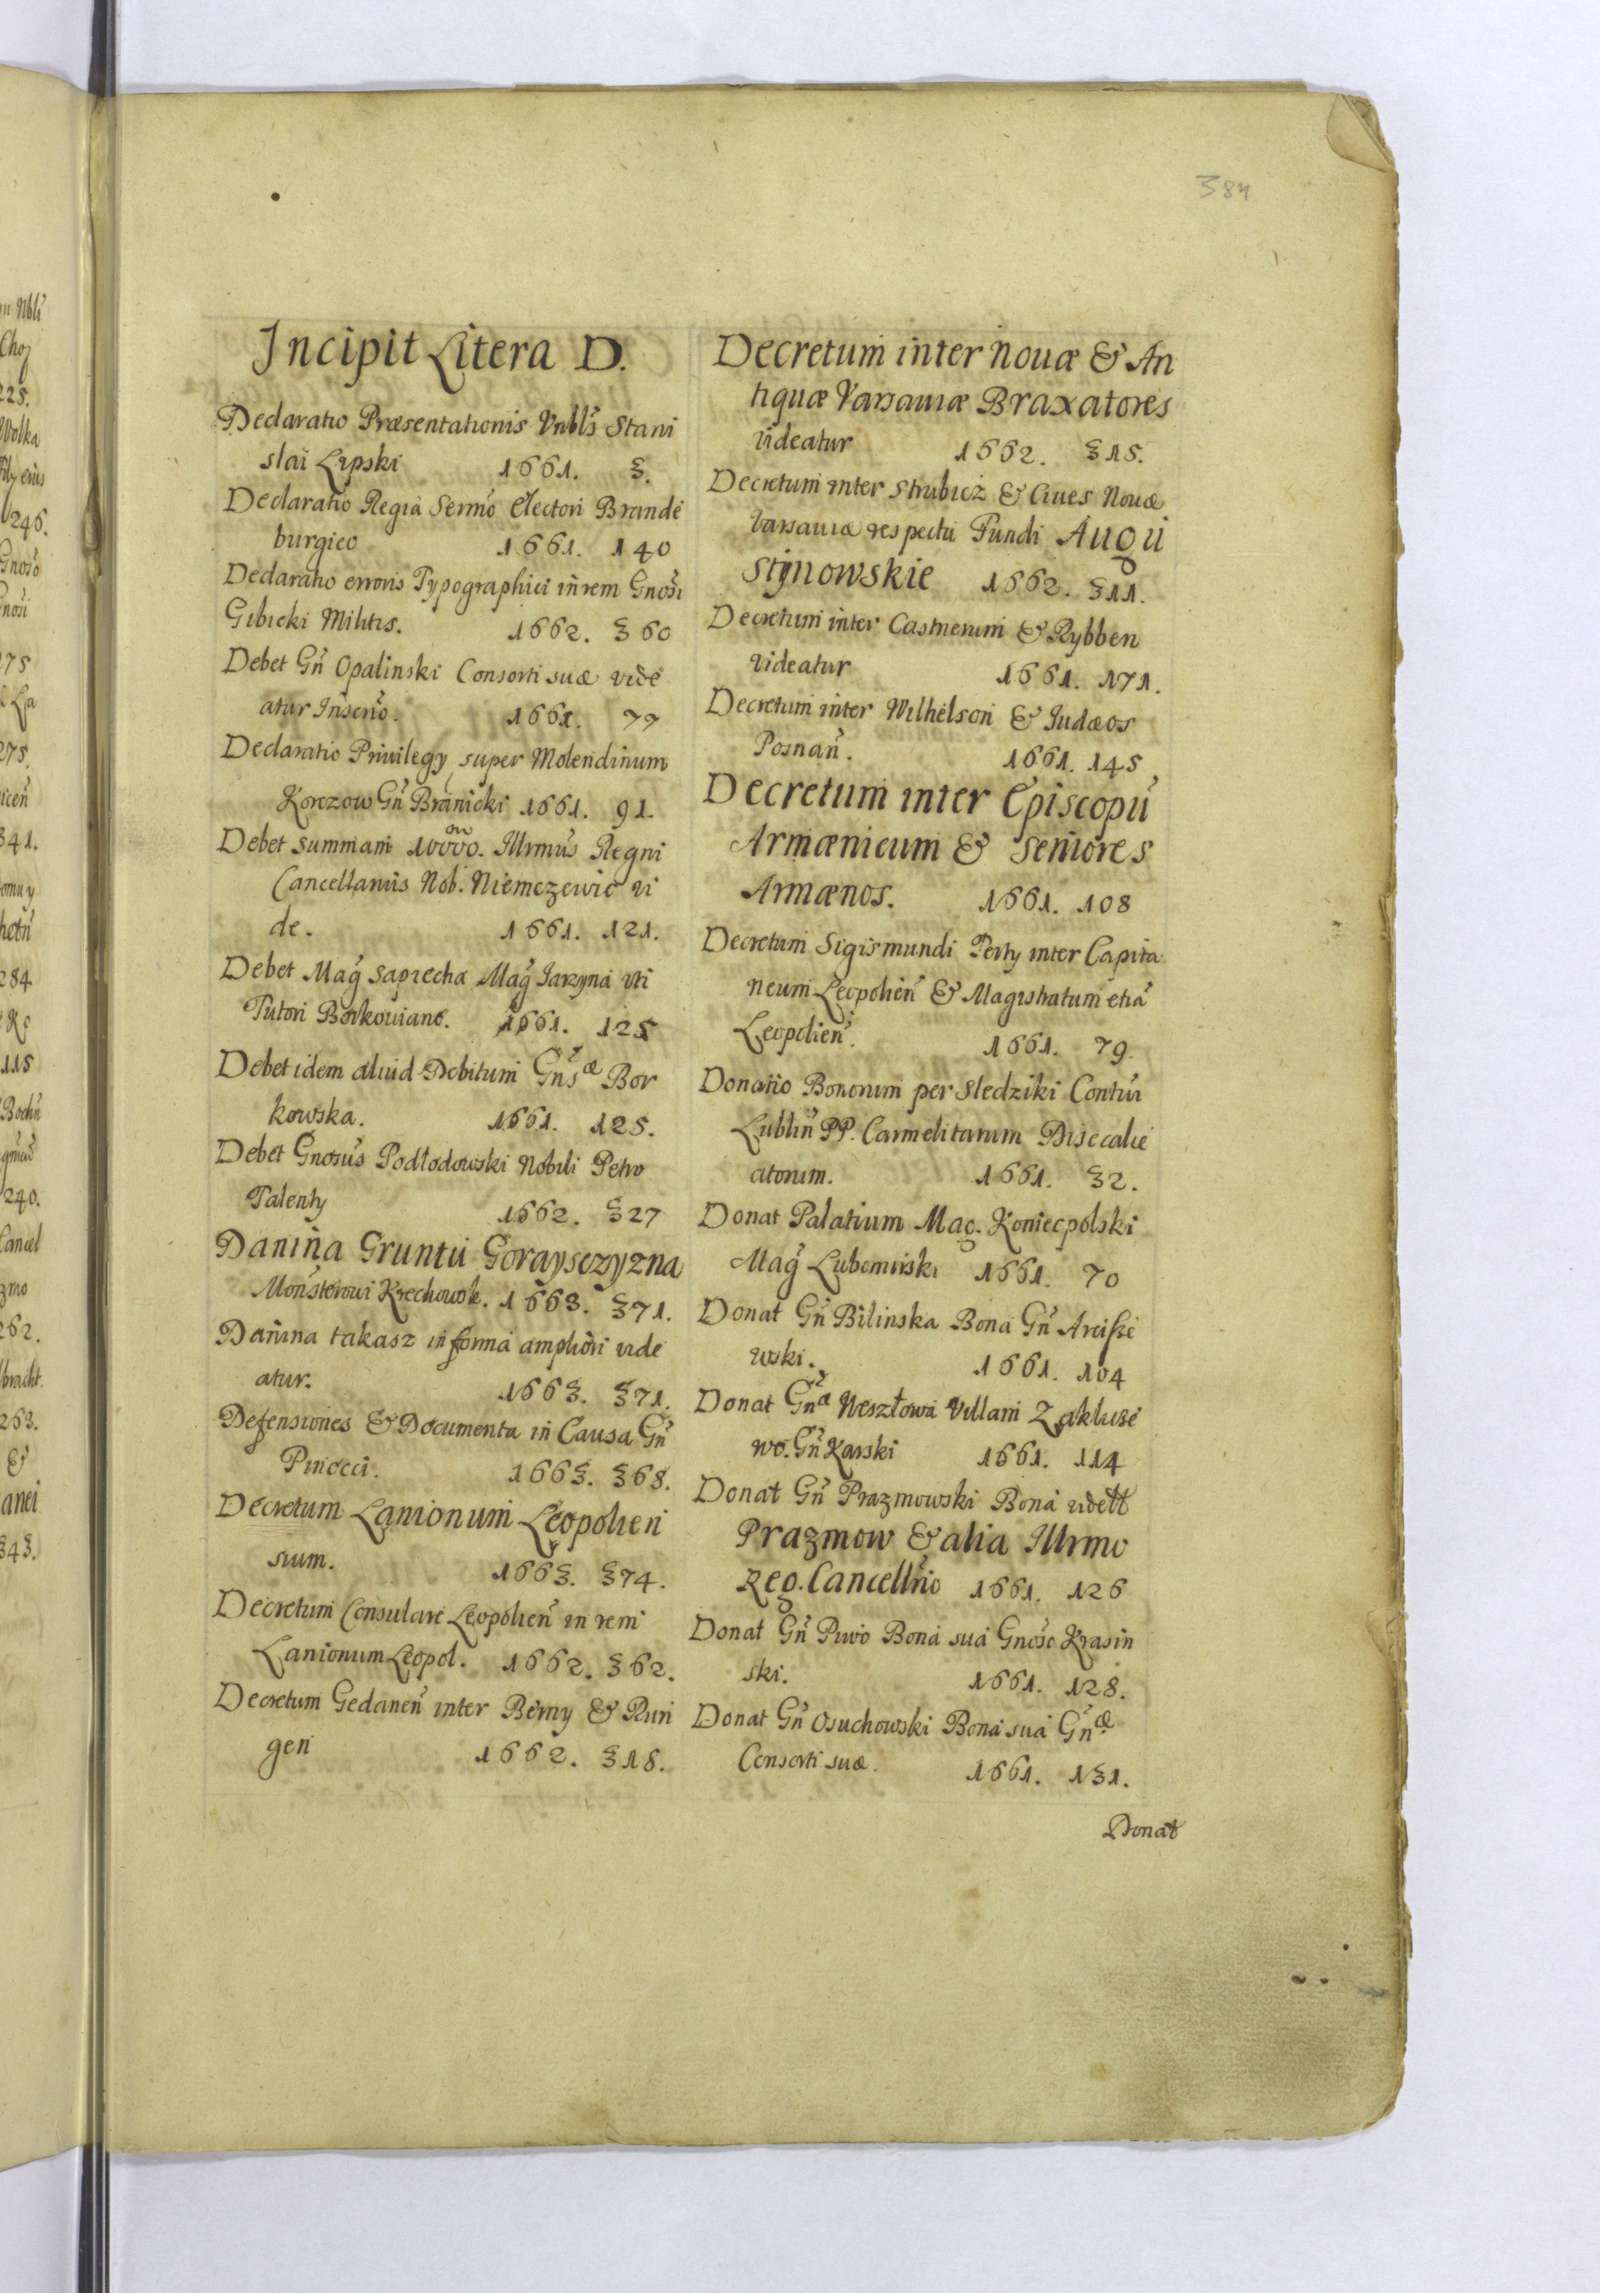 384
Incipit Litera D.
Declaratio Præsentationis Vnbls Stani
slai Lipski 1661. 3.
Declaratio Regia Sermo Electori Brande
burgico 1661. 140
Declaratio erroris Typographici in rem Gnosi
Gibicki Militis. 1662. 360
Debet Gn Opalinski Consorti suæ vide
atur Inscrio. 1661. 77
Declaratio Privilegy super Molendinum
Korczow Gn Branicki 1661. 91.
Debet summam 10000. Illrmus Regni
Cancellarius Nob. Niemczewic vi
de. 1661. 121.
Debet Mag Sapiecha Mag Jarzyna vti
Tutori Borkoviano. 1661. 125
Debet idem aliud Debitum Gnsæ Bor
kowska. 1661. 125.
Debet Gnosus Podłodowski Nobili Petro
Talenty 1662. 327
Danina Gruntu Goraysczyzna
Monsterowi Krechowk. 1663. 371.
Danina takasz in forma ampliori vide
atur. 1663. 371.
Defensiones & Documenta in Causa Gn
Pinocci. 1663. 368.
Decretum Lanionum Leopolien
sium. 1663. 374.
Decretum Consulare Leopolien in rem
Lanionum Leopol. 1662. 362.
Decretum Gedanen inter Berny & Run
gen 1662. 318.
Decretum inter Nouæ & An
tiquæ Varsauiæ Braxatores
videatur 1662. 315.
Decretum inter Strubicz & Ciues Nouæ
Varsauiæ respectu Fundi Augu
stynowskie 1662. 311.
Decretum inter Castnerum & Rybben
videatur 1661. 171.
Decretum inter Wilhelson & Judæos
Posnan. 1661. 145
Decretum inter Episcopu
Armænicum & Seniores
Armænos. 1661. 108
Decretum Sigismundi Terty inter Capita
neum Leopolien & Magistratum etia
Leopolien. 1661. 79.
Donatio Bonorum per Sledziki Contui
Lublin PP. Carmelitarum Discalce
atorum. 1661. 32.
Donat Palatium Mag. Koniecpolski
Mag Lubomirski 1661. 70
Donat Gn Bilinska Bona Gn Arcisze
wski. 1661. 104
Donat Gna Weszłowa Villam Zakluze
wo. Gn Karski 1661. 114
Donat Gn Prazmowski Bona vidett
Prazmow & alia Illrmo
Reg. Cancellrio 1661. 126
Donat Gn Piwo Bona sua Gnoso Krasin
ski. 1661. 128.
Donat Gn Osuchowski Bona sua Gnæ
Consorti suæ. 1661. 131.
Donat